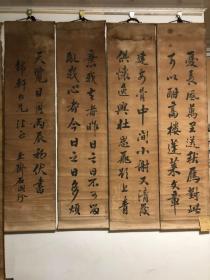 憂長風萬里送秋雁對此
可以酣高樓蓬萊文章
建安骨中間小謝又清發
俱懷逸興壯思飛欲上青
棄我去者昨日之日不可留
亂我心者今日之日多煩
天覽日月丙辰初伏書
錦軒四兄法正